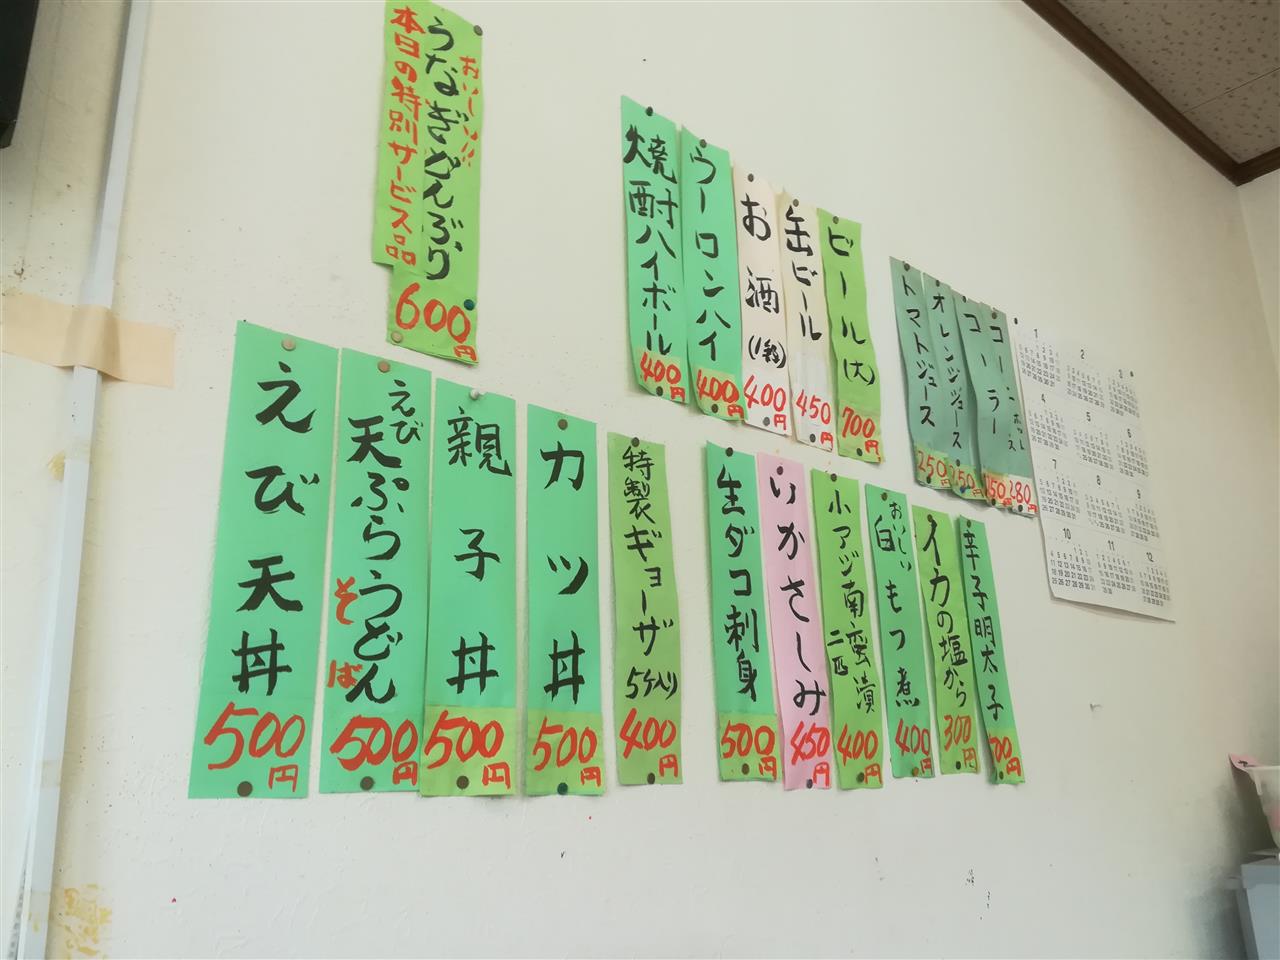 おいしい!!
うなぎどんぶり
本日の特別サービス品
600円
焼酎ハイボール
400円
ウーロンハイ
400円
お酒
400円
缶ビール
450円
ビール(大)
700円
トマトジュース
250円
オレンジジュース
コーラ
280円
えび天丼
500円
えび
天ぷらうどん
そば
500円
親子丼
500円
カツ丼
500円
特製ギョーザ
5ケ入り
400円
生ダコ刺身
500円
いかさしみ
450円
小アジ南蛮漬
二匹
400円
おいしい
白もつ煮
400円
イカの塩から
300円
辛子明太子
1
2
3
4
5
6
7
8
9
10
11
12